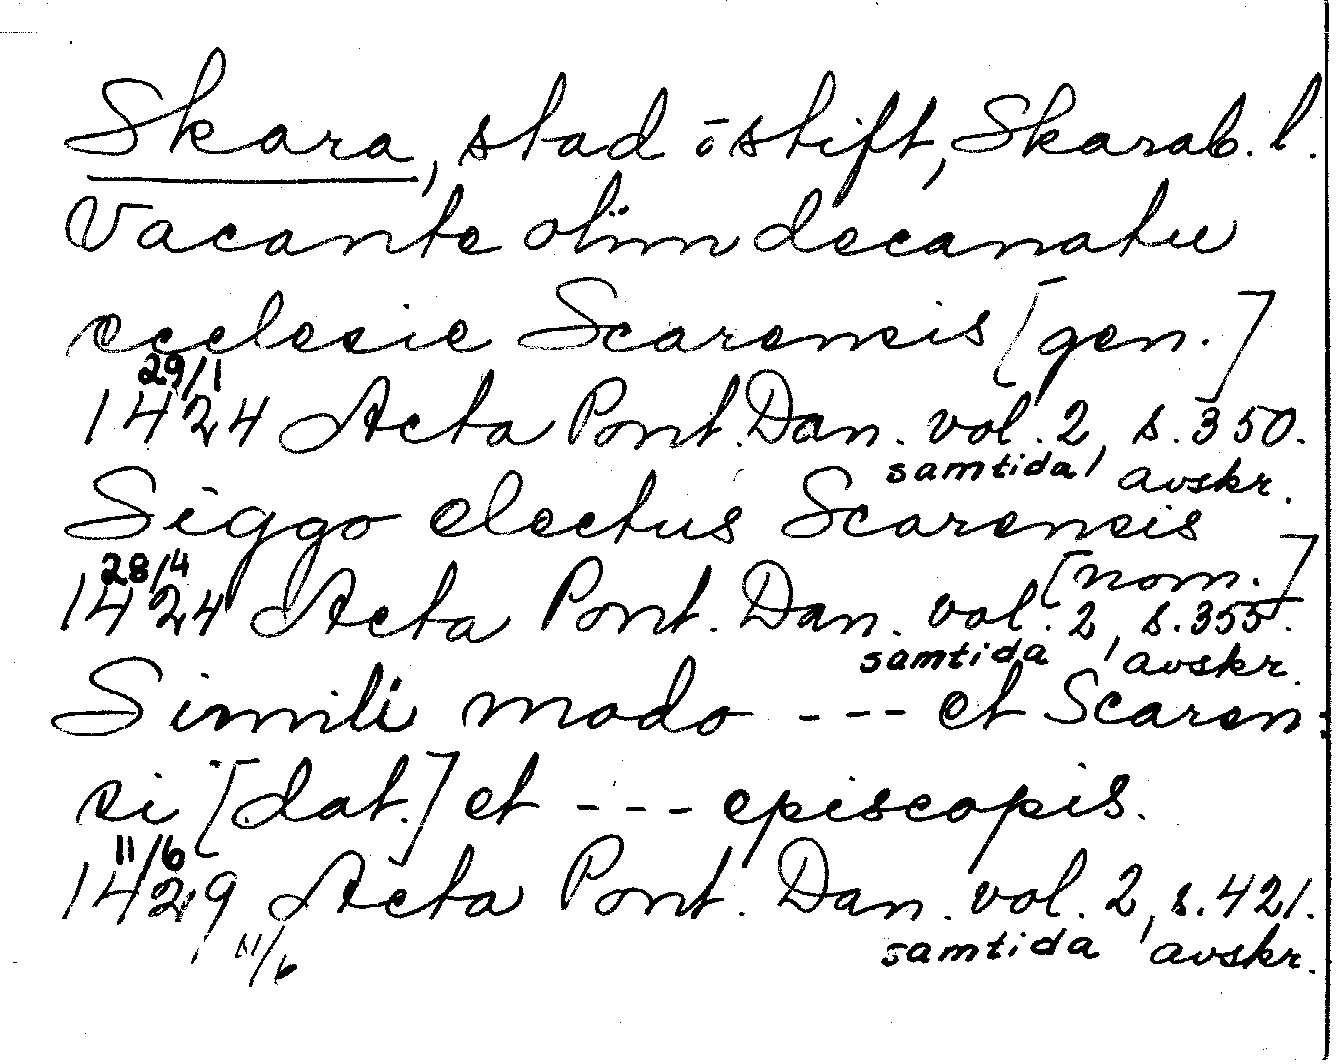 Skara, stad ō stift, Skarab. l.
Vacante olim decanatu
ecclesie Scarensis [gen.]
29/1
1424 Acta Pont. Dan. vol. 2, s. 350.
samtida avskr.
Siggo electus Scarensis
[nom.]
28/4
1424 Acta Pont. Dan. vol. 2, s. 355.
samtida avskr.
Simili modo --- et Scaren=
si [dat.] et --- episcopis.
11/6
1429 Acta Pont. Dan. vol. 2, s. 421.
11/6 samtida avskr.